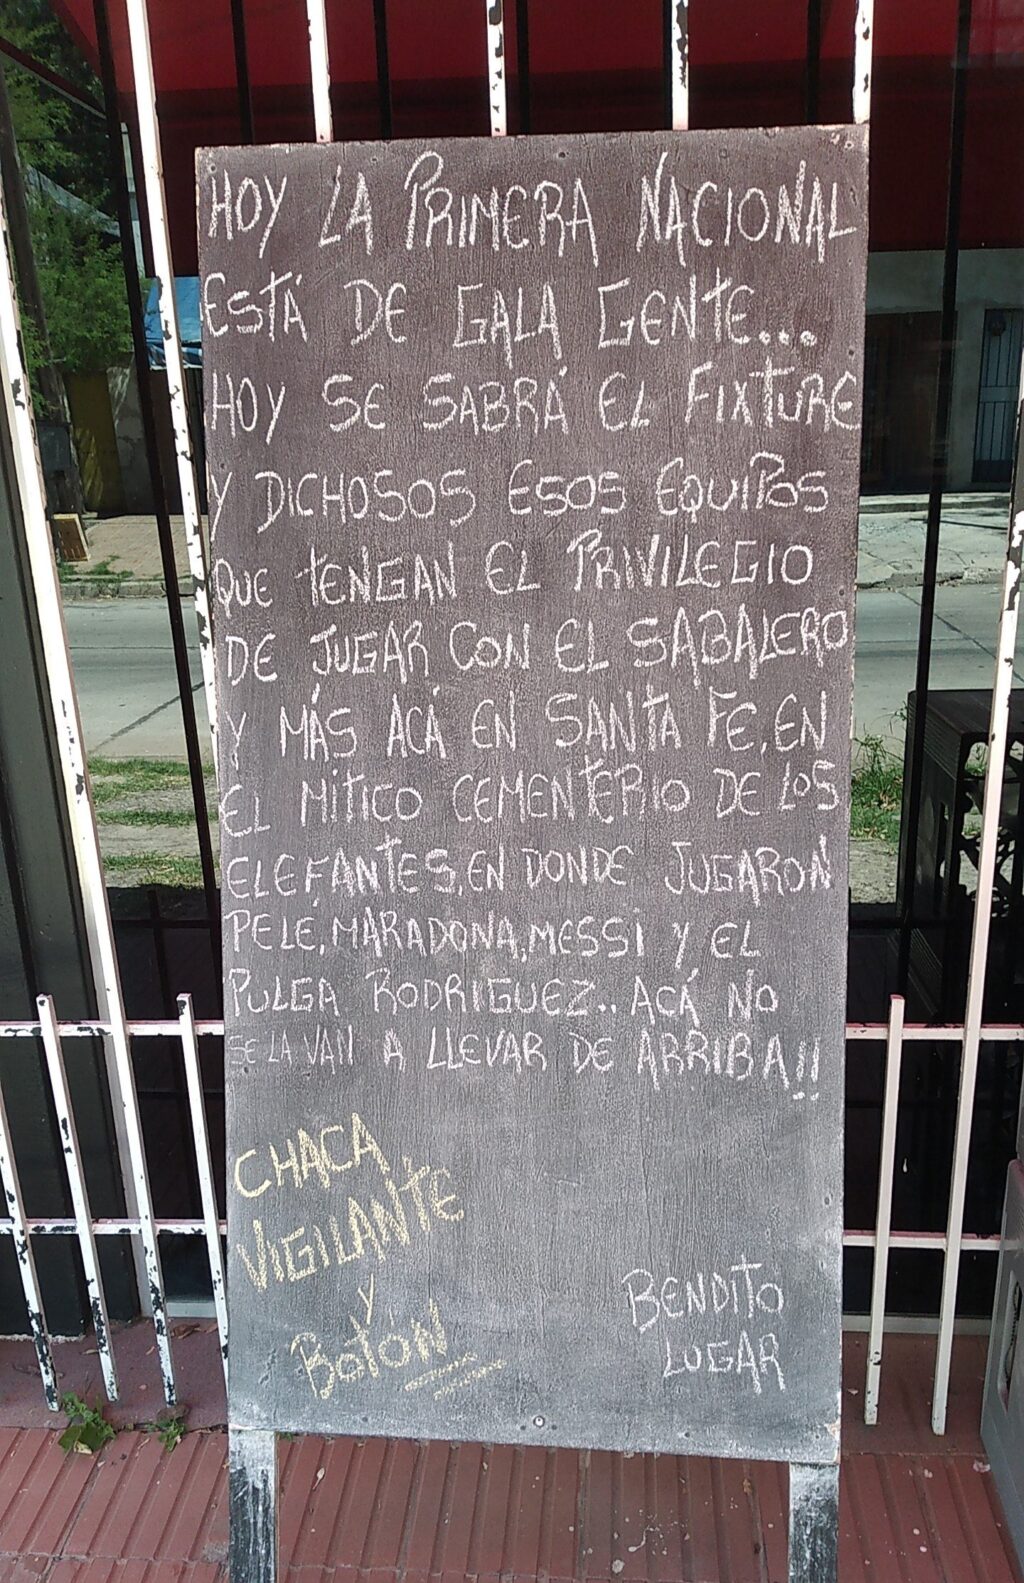 HOY LA PRIMERA NACIONAL
ESTÁ DE GALA GENTE...
HOY SE SABRÁ EL FIXTURE
Y DICHOSOS ESOS EQUIPOS
QUE TENGAN EL PRIVILEGIO
DE JUGAR CON EL SABALERO
Y MÁS ACÁ EN SANTA FE, EN
EL MITICO CEMENTERIO DE LOS
ELEFANTES, EN DONDE JUGARON
PELÉ, MARADONA, MESSI Y EL
PULGA RODRIGUEZ.. ACÁ NO
SE LA VAN A LLEVAR DE ARRIBA!!
CHACA
VIGILANTE
Y
BOTÓN
BENDITO
LUGAR